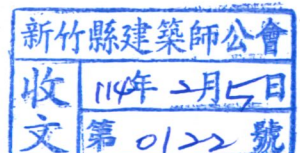 新竹縣建築師公會
收文
114年2月5日
第0122號